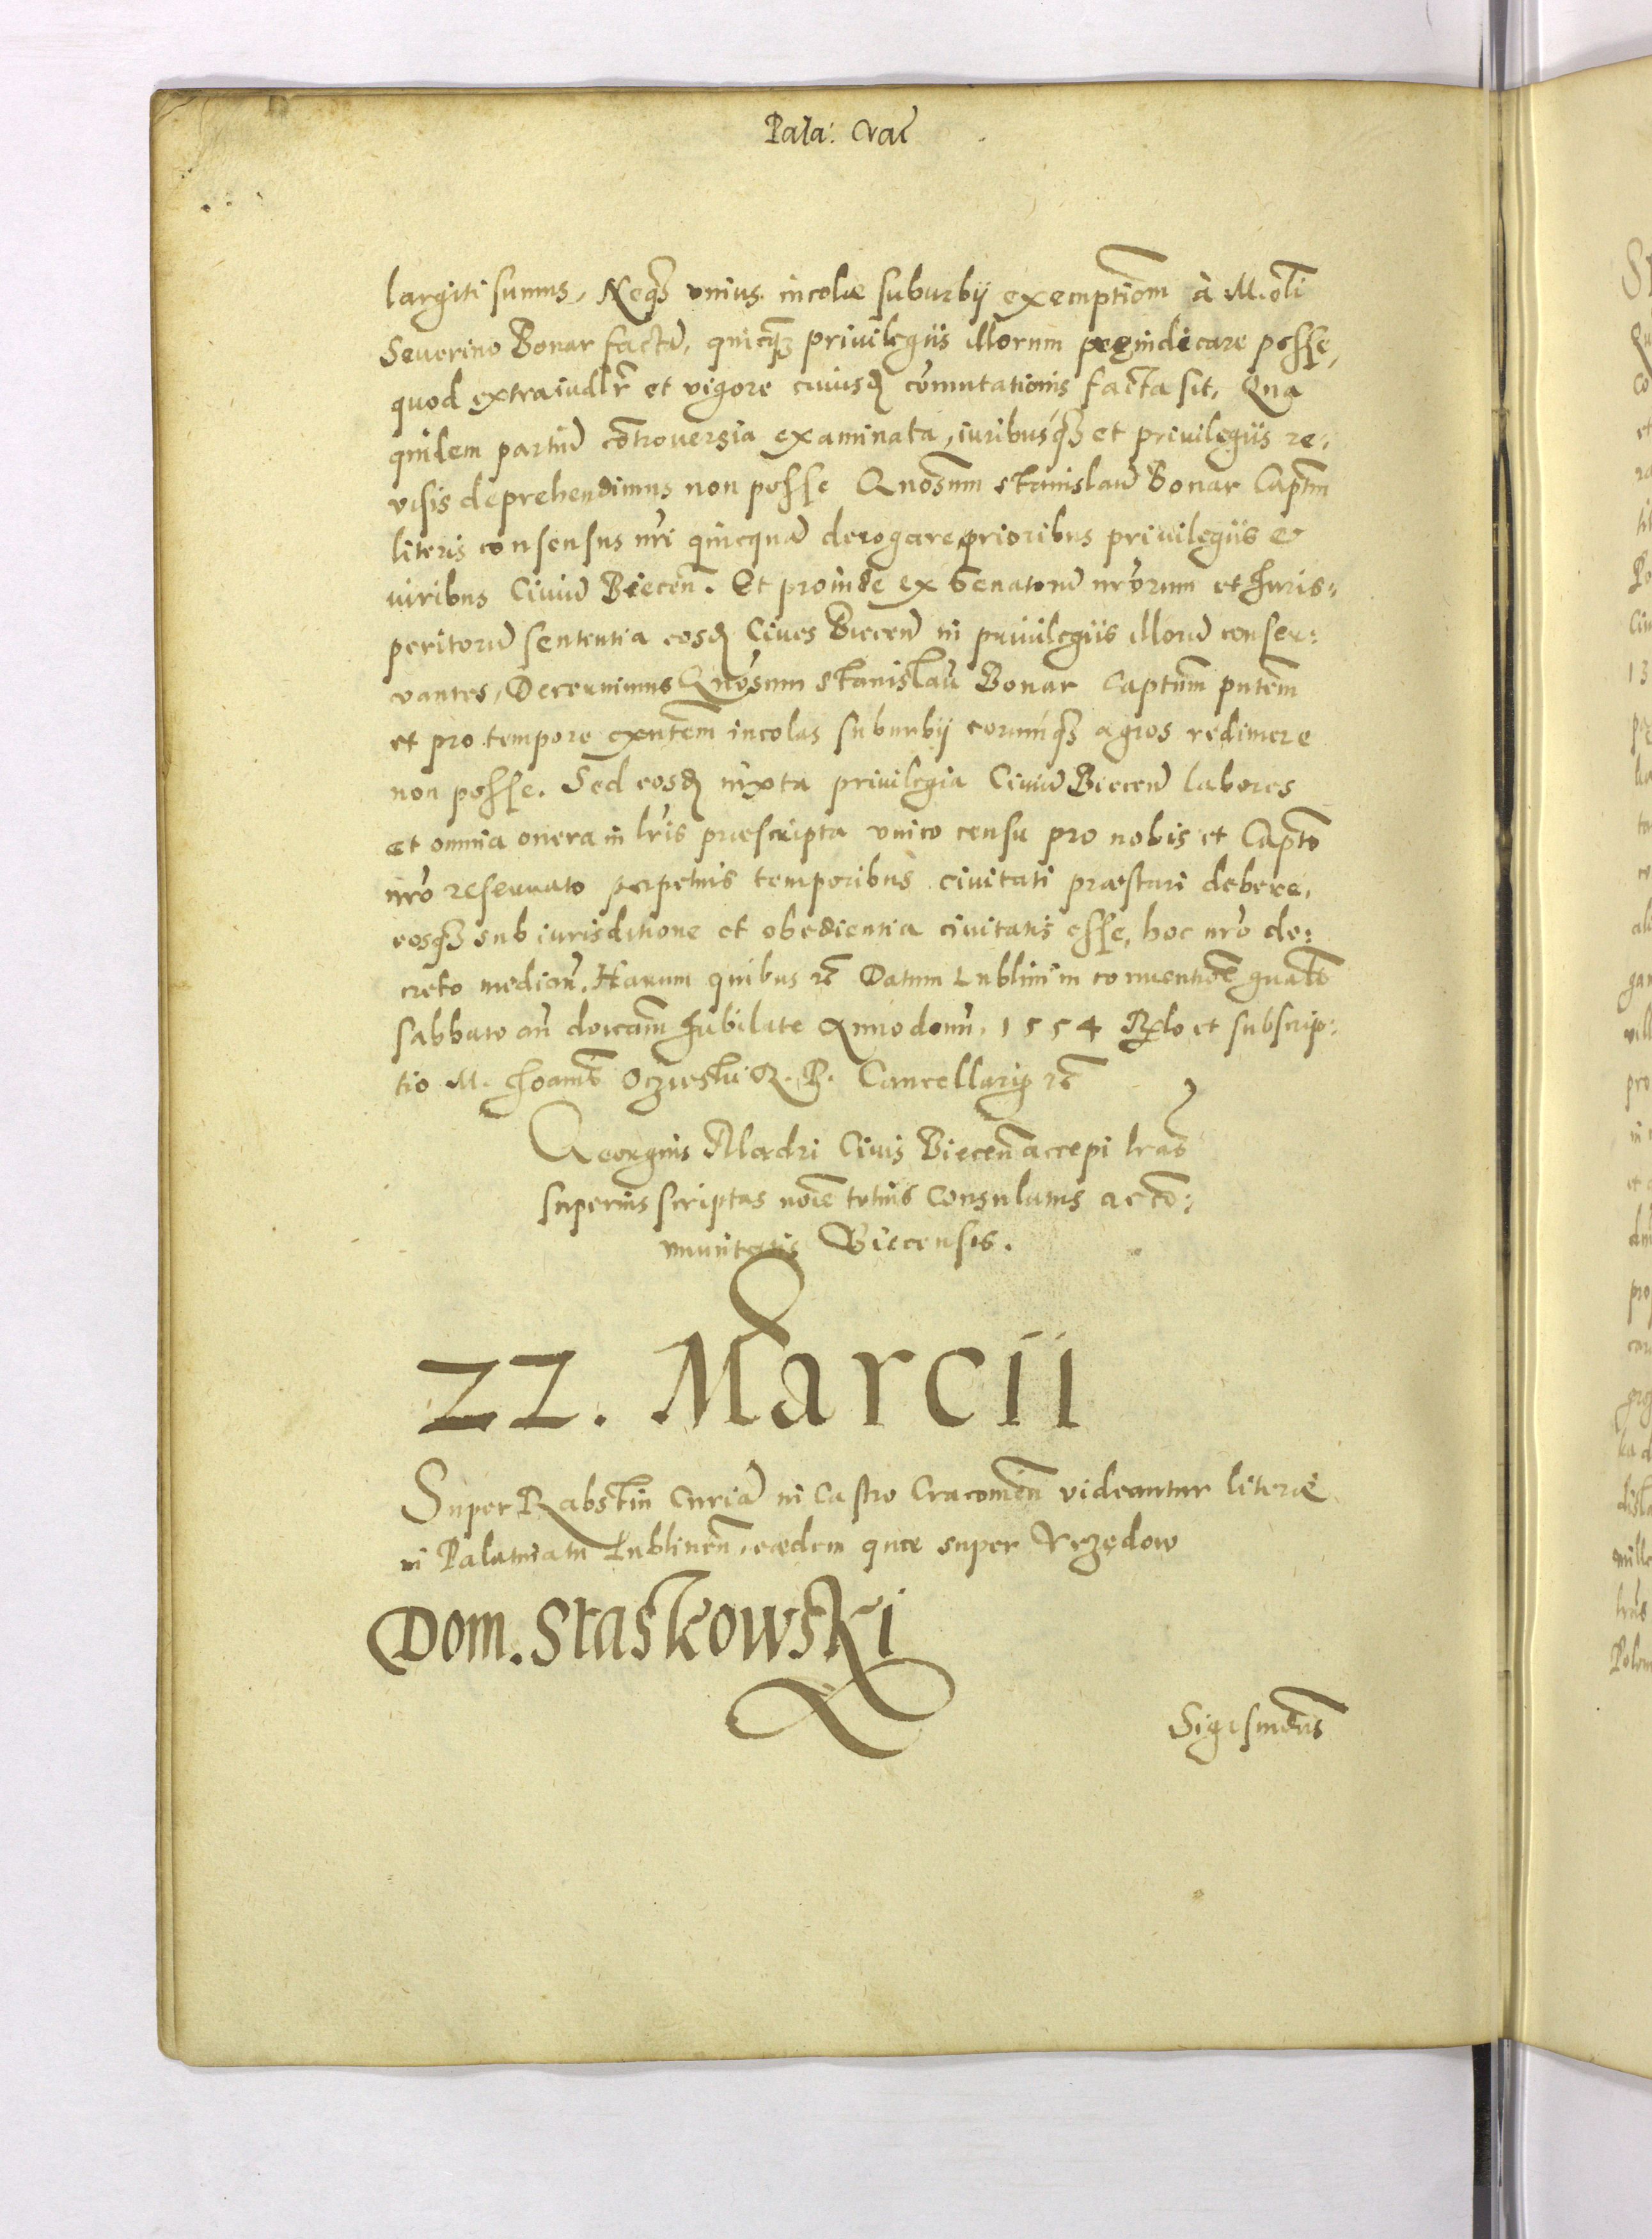 Pala: Crac̄
largiti sumus, Neqз vnius incolæ suburbij exemptiōm à M. olī
Seuerino Bonar factā, quicqз priuilegiis illorum preiudicare posse,
quod extraiudlr̄ et vigore cuiusd̄ cōmutationis facta sit, Qua
quidem partiū cōtrouersia examinata, iuribusqз et priuilegiis re-
visis deprehendimus non posse Gn̄osum stanislaū Bonar Captm̄
literis consensus nr̄i quicquā derogare prioribus priuilegiis et
iuribus Ciuiū Biecen̄. Et proinde ex Senatorū nr̄orum et Juris-
peritorū sententia eosd̄ Ciues Biecen̄ in priuilegiis illorū conser-
vantes, Decernimus Gn̄osum stanislaū Bonar Captn̄m pn̄tem
et pro tempore exn̄tem incolas suburbij eorumqз agros redimere
non posse. Sed eosd̄ iuxta priuilegia Ciuiū Biecen̄ labores
et omnia onera in lr̄is præscripta vnico censu pro nobis et Capto
nr̄o reseruato perpetuis temporibus ciuitati præstari debere,
eosqз sub iurisditione et obedientia ciuitatis esse, hoc nr̄o de-
creto median̄. Harum quibus rc̄ Datum Lublini in conuentiōe gn̄ali
sabbato an̄ dnicam Jubilate Anno domi. 1554 Rꝑlo et subscrip-
tio M. Joanis Oczieski R. P. Cancellarij rc̄
Georgius Mordzi Ciuis Biecen̄ accepi lr̄as
superius scriptas noīe totius Consulatus ac cō-
munitatis Biecensis.
22. Marcii
Super Rabstin Curiā in Castro Cracouien̄ videantur literæ
in Palatinatu Lublinen̄, eædem quæ super Vrzędow
Dom. Staskowski
Sigismūdus